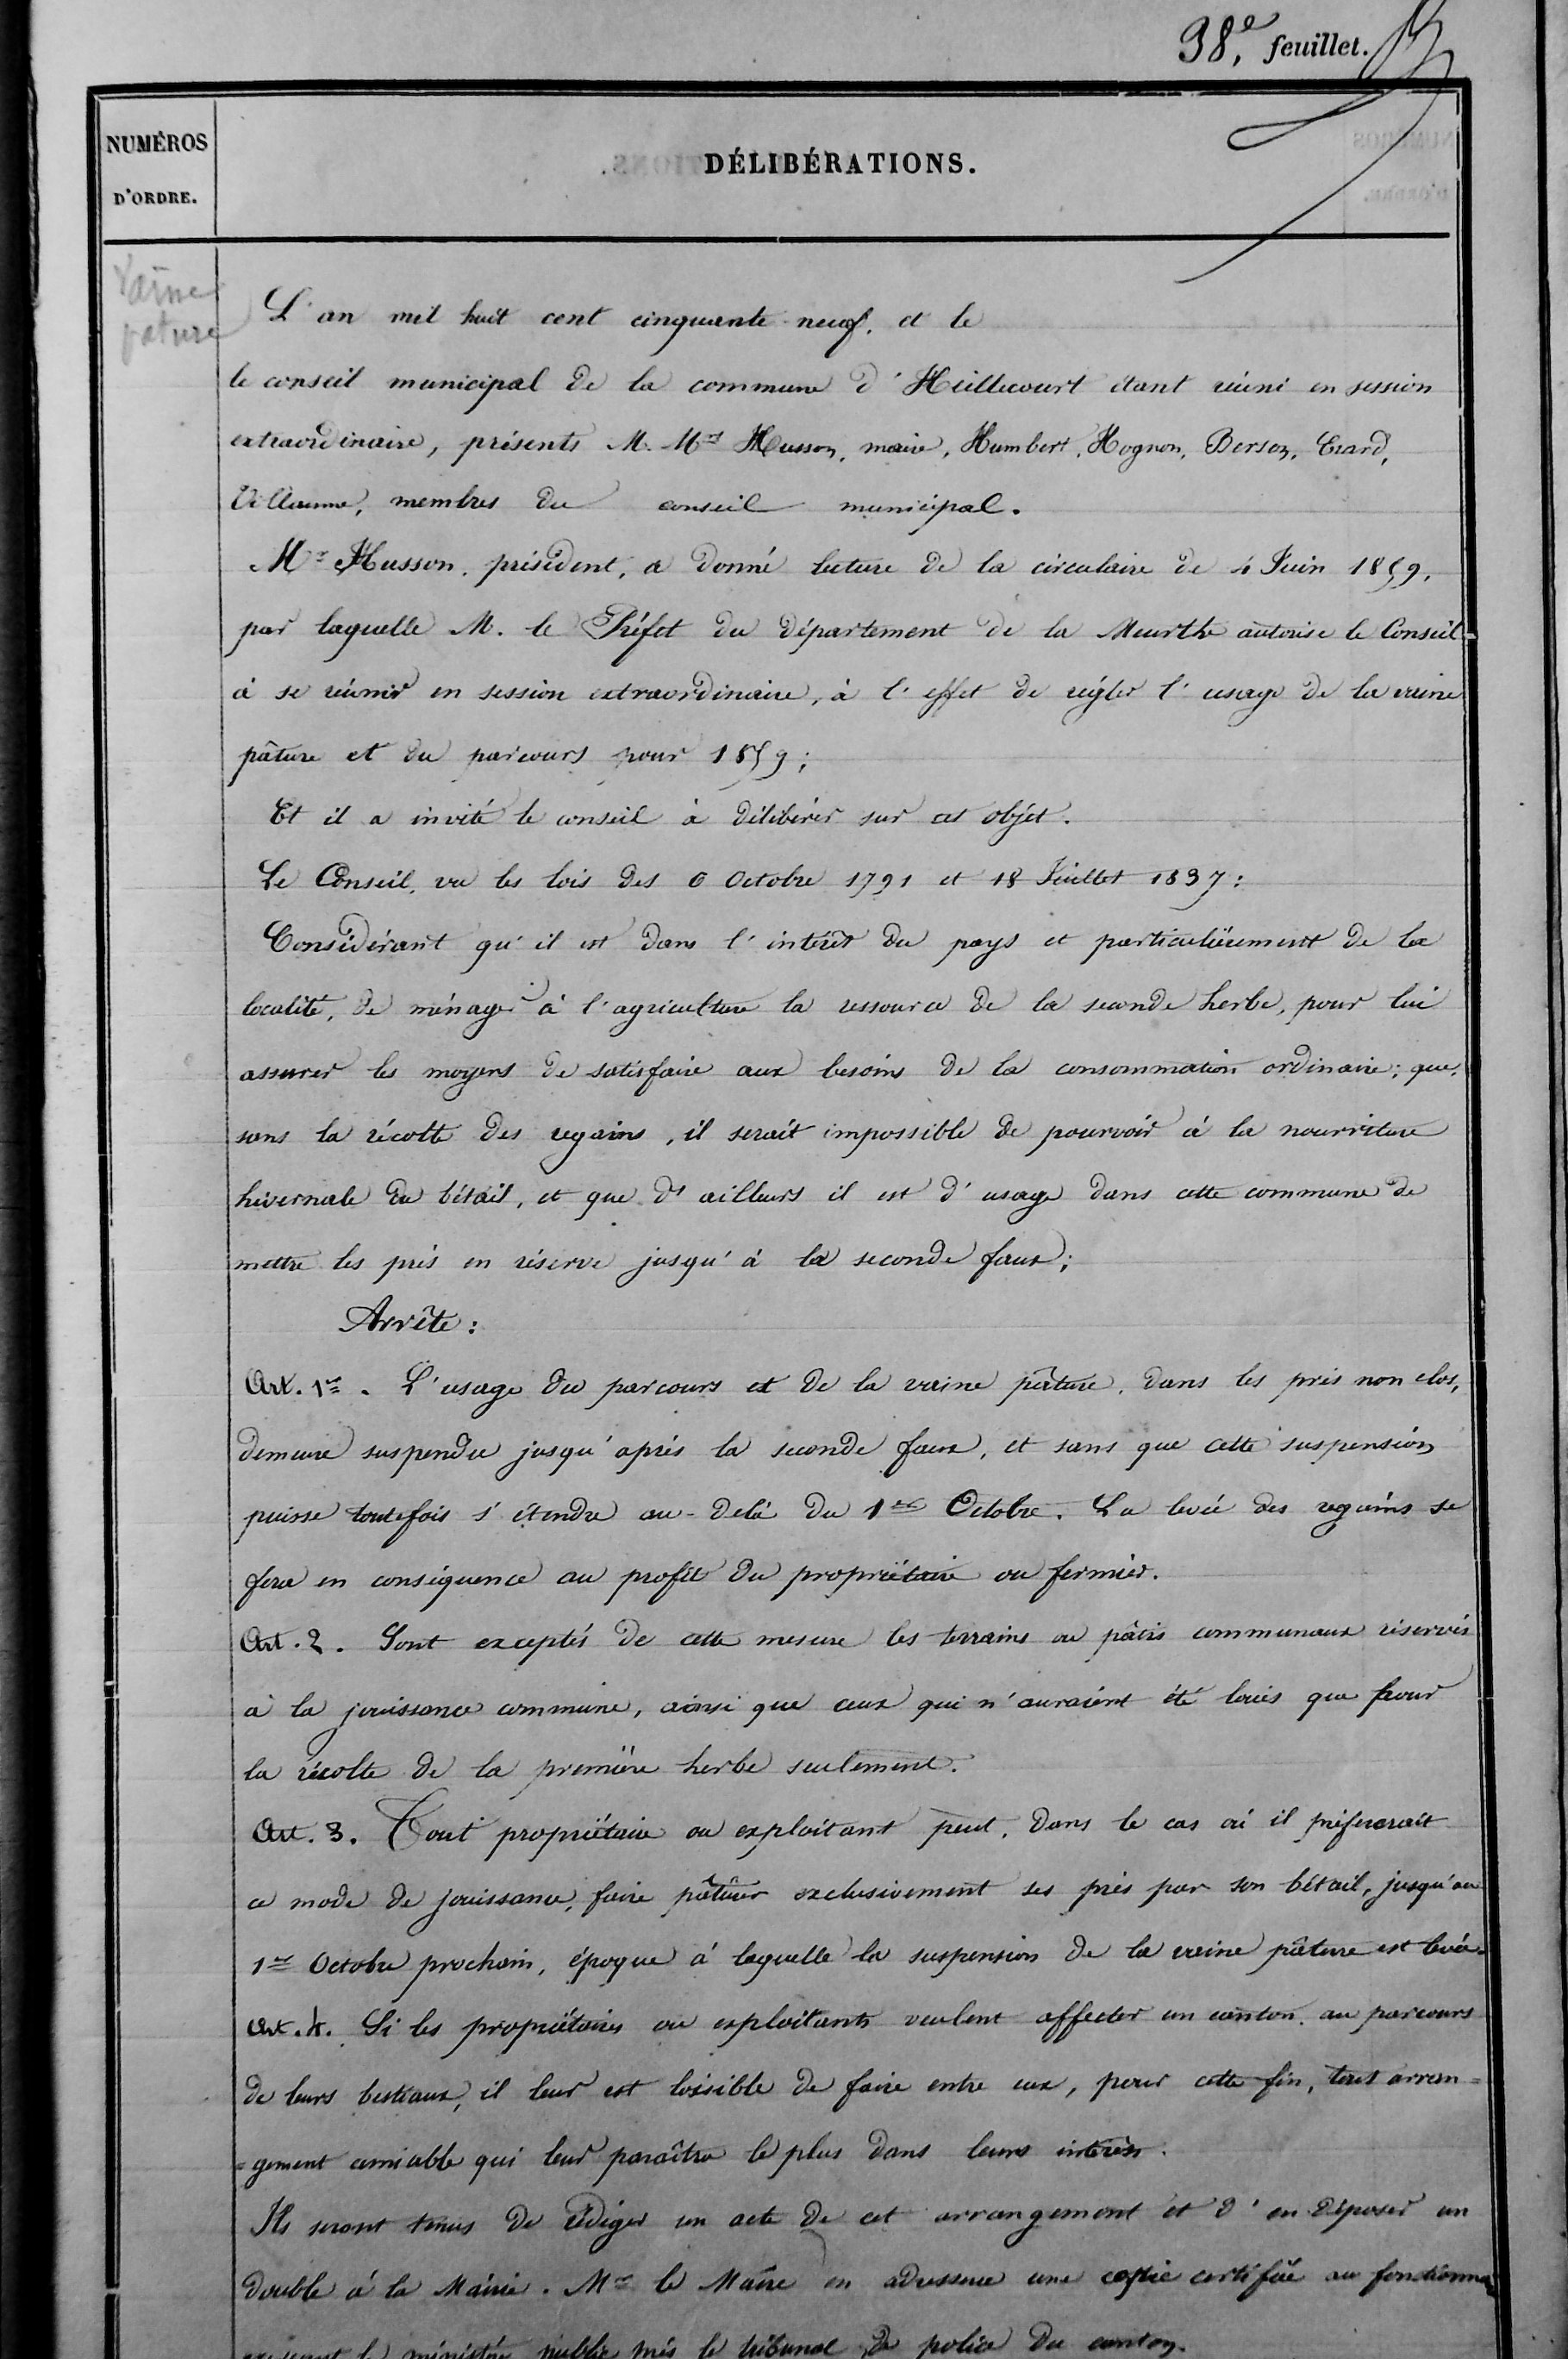 98e. feuillet.
NUMÉROS
D'ORDRE.
DÉLIBÉRATIONS.
Vaine
pature
L'an mil huit cent cinquante neuf, et le
le conseil municipal de la commune d'Heillecourt étant réuni en session
extraordinaire, présents M. Mrs Husson, maire, Humbert, Hognon, Berson, Erard,
Villaume, membres du conseil municipal.
Mr Husson, président, a donné lecture de la circulaire de 4 Juin 1859,
par laquelle M. le Préfet du département de la Meurthe autorise le Conseil
à se réunir en session extraordinaire, à l'effet de régler l'usage de la vaine
pâture et du parcours pour 1859;
Et il a invité le conseil à délibérer sur cet objet.
Le Conseil, vu les lois des 6 Octobre 1791 et 18 Juillet 1837:
Considérant qu'il est dans l'intérêt du pays et particulièrement de la
localité, de ménager à l'agriculture la ressource de la seconde herbe, pour lui
assurer les moyens de satisfaire aux besoins de la consommation ordinaire; que,
sans la récolte des regains, il serait impossible de pourvoir à la nourriture
hivernale du bétail, et que d'ailleurs il est d'usage dans cette commune de
mettre les prés en réserve jusqu'à la seconde faux;
Arrête:
Art. 1er. L'usage du parcours et de la vaine pâture, dans les prés non clos,
demeure suspendu jusqu'après la seconde faux, et sans que cette suspension
puisse toutefois s'étendre au-delà du 1er Octobre. La levée des regains se
fera en conséquence au profit du propriétaire ou fermier.
Art. 2. Sont exceptés de cette mesure les terrains ou pâtis communaux réservés
à la jouissance commune, ainsi que ceux qui n'auraient été loués que pour
la récolte de la première herbe seulement.
Art. 3. Tout propriétaire ou exploitant peut, dans le cas où il préfererait
ce mode de jouissance, faire pâturer exclusivement ses prés par son bétail, jusqu'au
1er Octobre prochain, époque à laquelle la suspension de la vaine pâture est levée.
Art. 4. Si les propriétaires ou exploitants veulent affecter un canton au parcours
de leurs bestiaux, il leur est loisible de faire entre eux, pour cette fin, tout arran=
=gement amiable qui leur paraîtra le plus dans leurs intérêts.
Ils seront tenus de rédiger un acte de cet arrangement et d'en déposer un
double à la Mairie. Mr le Maire en adressera une copie certifiée au fonctionna
le ministère public près le tribunal de police du canton.